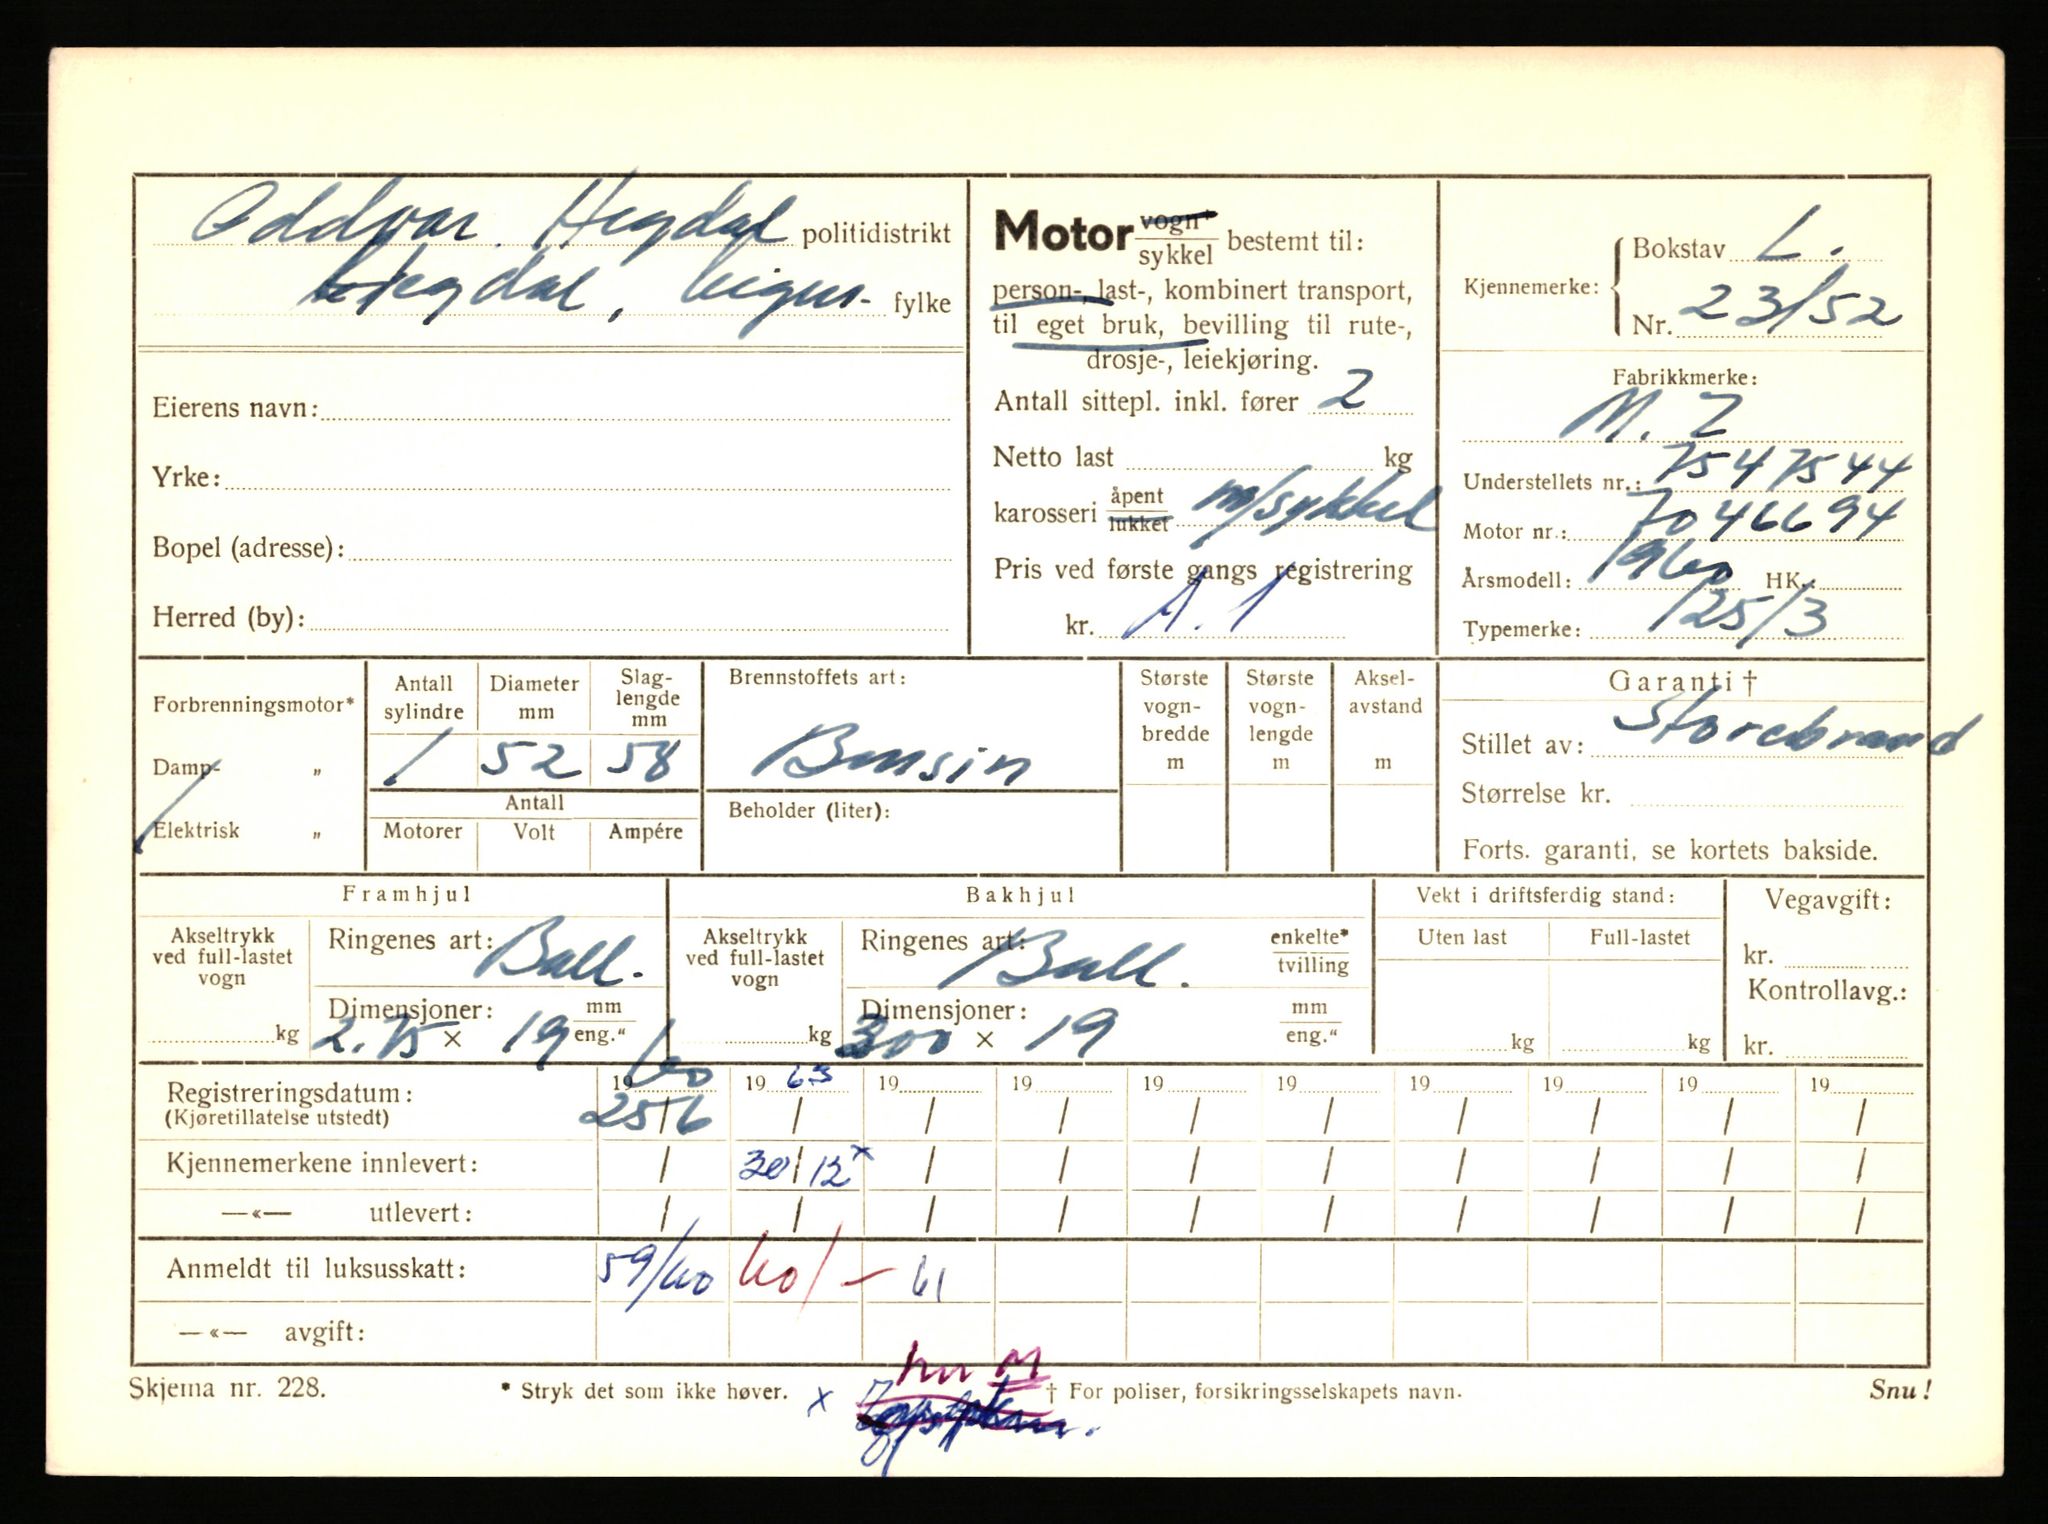 Oddvar Hegdal politidistrikt
Hegdal, Eigers- fylke
Eierens navn:
Yrke:
Bopel (adresse):
Herred (by):
Motor vogn† / sykkel bestemt til:
person-, last-, kombinert transport,
til eget bruk, bevilling til rute-,
drosje-, leiekjøring.
Antall sittepl. inkl. fører 2
Netto last kg
karosseri åpent / lukket m/sykkel
Pris ved første gangs registrering
kr. A.1
Kjennemerke: Bokstav L.
Nr. 23152
Fabrikkmerke:
M.Z
Understellets nr.: 7547544
Motor nr.: 7046694
Årsmodell: 1960 HK.:
Typemerke: 125/3
Forbrenningsmotor*
Damp- „
Elektrisk „
Antall sylindre 1
Diameter mm 52
Slaglengde mm 58
Antall
Motorer Volt Ampére
Brennstoffets art:
Bensin
Beholder (liter):
Største vogn-bredde m
Største vogn-lengde m
Aksel-avstand m
Garanti †
Stillet av: Storebrand
Størrelse kr.
Forts. garanti, se kortets bakside.
Framhjul
Akseltrykk ved full-lastet vogn
kg
Ringenes art: Ball.
Dimensjoner: mm / eng.“
2.75 x 19
Bakhjul
Akseltrykk ved full-lastet vogn
kg
Ringenes art: Ball. enkelte* / tvilling
Dimensjoner: mm / eng.“
300 x 19
Vekt i driftsferdig stand:
Uten last Full-lastet
kg kg
Vegavgift:
kr.
Kontrollavg.:
kr.
Registreringsdatum: 1960 1963 19 19 19 19 19 19 19 19
(Kjøretillatelse utstedt) 25/6 / / / / / / / / /
Kjennemerkene innlevert: / 30/12x / / / / / / / /
—«— utlevert: / / / / / / / / / /
Anmeldt til luksusskatt: 59/60 60/- 61
—«— avgift:
Skjema nr. 228. * Stryk det som ikke høver. x † For poliser, forsikringsselskapets navn. Snu!